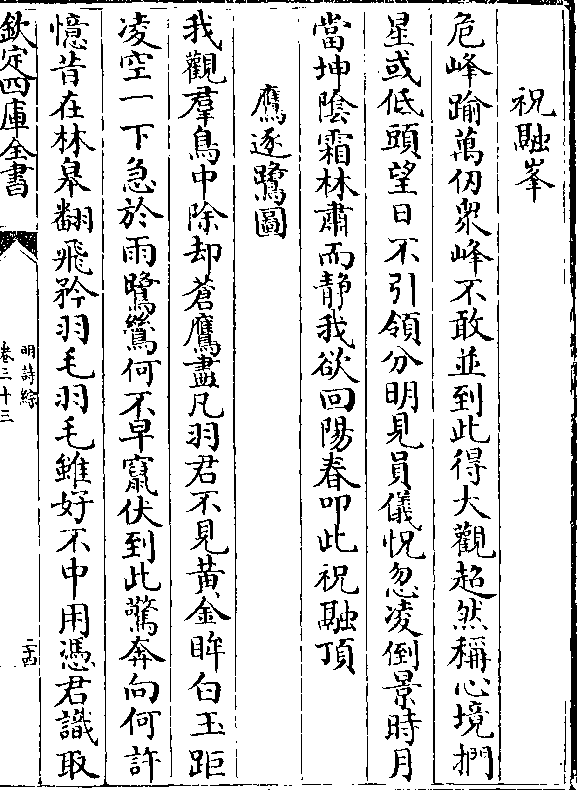 祝融峯
危峰踰萬仞衆峰不敢並到此得大觀超然稱心境捫
星或低頭望日不引領分明見員儀怳忽凌倒景時月
當坤陰霜林肅而静我欲回陽春叩此祝融頂
鷹逐鷺圖
我觀羣鳥中除却蒼鷹盡凡羽君不見黄金眸白玉距
凌空一下急於雨鷺鷥何不早竄伏到此驚奔向何許
憶昔在林臯翻飛矜羽毛羽毛雖好不中用憑君識取
欽定四庫全書
明詩綜
卷三十三
二十四